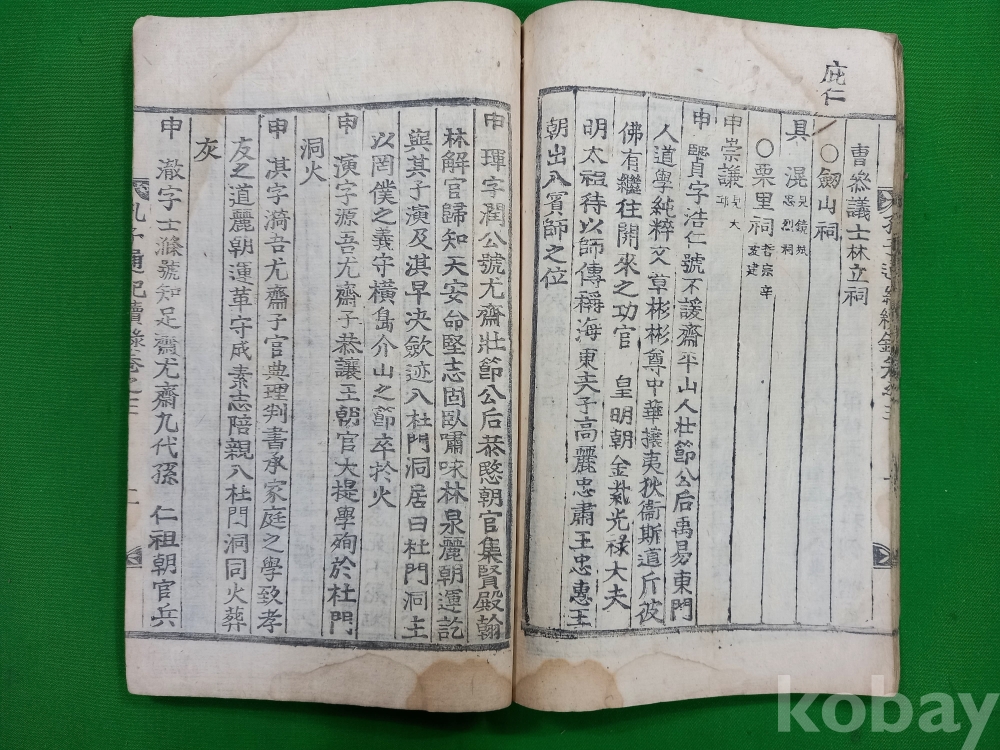 庇仁
曺參議士林立祠
○劒山祠
具 滉 見鏡城忠烈祠
○栗里祠 哲宗辛亥建
申崇謙 見大邱
申 賢字浩仁號不諼齋平山人壯節公后禹易東門
人道學純粹文章彬彬尊中華攘夷狄衛斯道斤彼
佛有繼往開來之功官 皇明朝金紫光禄大夫
明太祖待以師傳稱海東夫子高麗忠肅王忠惠王
朝出入賓師之位
申 琿字潤公號尤齋壯節公后恭愍朝官集賢殿翰
林解官歸知天安命堅志固臥嘯咏林泉麗朝運訖
與其子演及淇早决歛迹入杜門洞居曰杜門洞主
以罔僕之義守橫島介山之節卒於火
申 演字源吾尤齋子恭讓王朝官大提學殉於杜門
洞火
申 淇字漪吾尤齋子官典理判書承家庭之學致孝
友之道麗朝運革守成素志陪親入杜門洞同火葬
灰
申 澈字士滌號知足齋尤齋九代孫 仁祖朝官兵
孔子通紀續錄卷之三 二
kobay